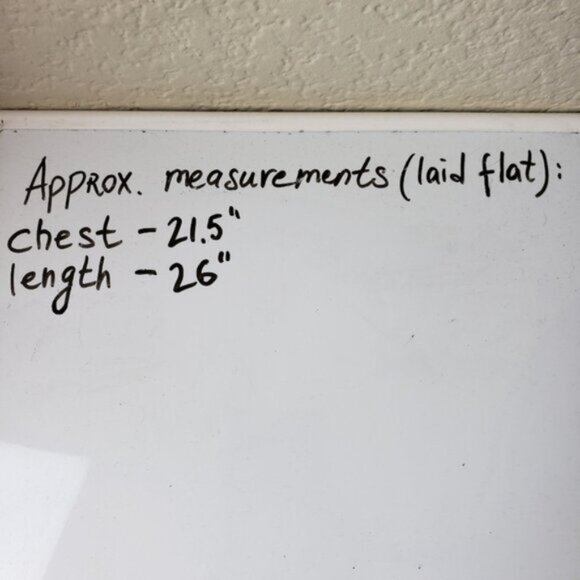 Approx. measurements (laid flat):
chest - 21.5"
length - 26"